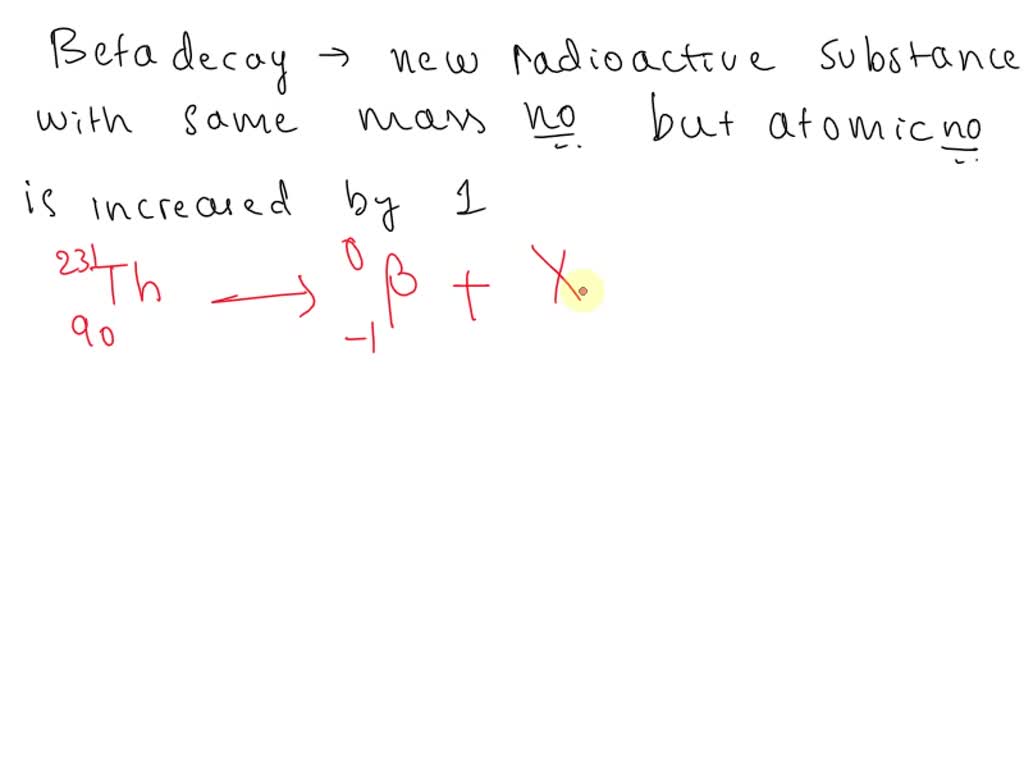 Beta decay → new radioactive substance
with same mass no but atomic no
is increased by 1
²³¹₉₀Th → ⁰₋₁β + X